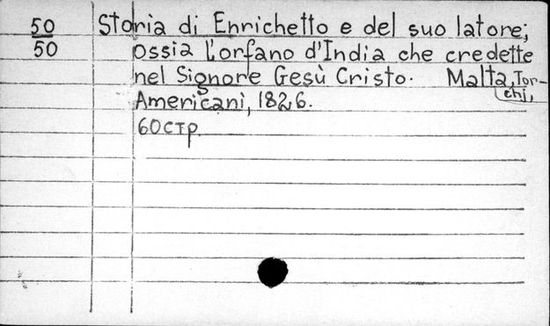 50
50
Storia di Enrichetto e del suo latore;
ossia l'orfano d'India che credette
nel Signore Gesù Cristo. Malta, Tor-
chi,
Americani, 1826.
60 стр.